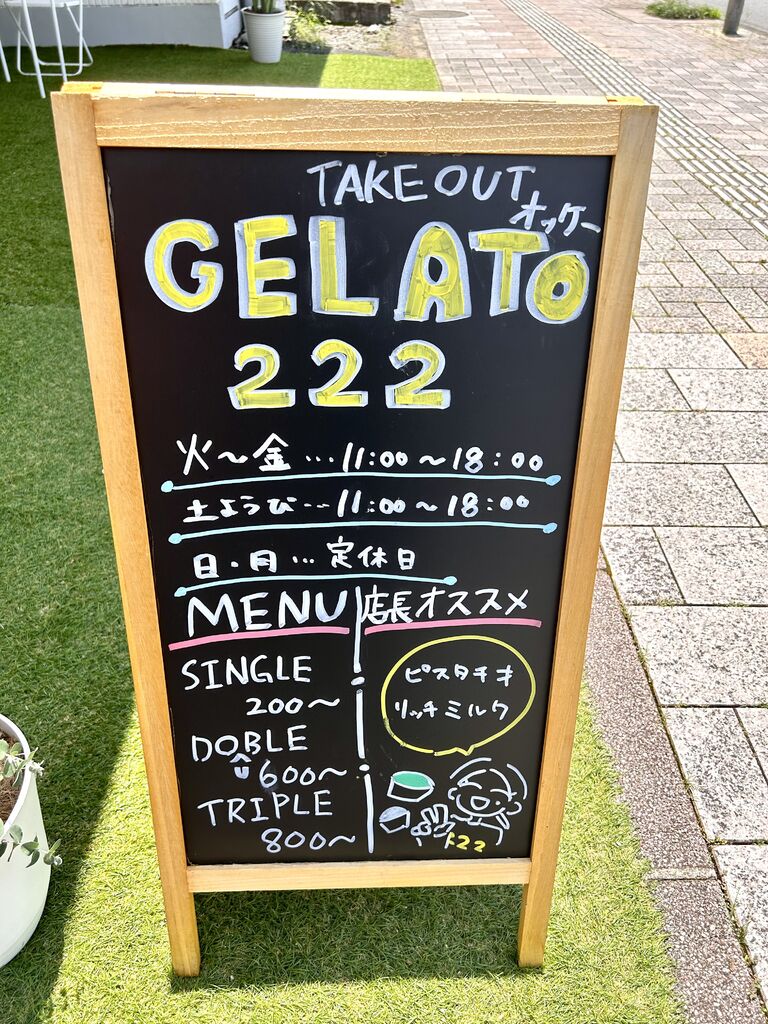 TAKE OUT
オッケー
GELATO
222
火〜金…11:00〜18:00
土ようび…11:00〜18:00
日・月…定休日
MENU
SINGLE
200〜
DOBLE
U
600〜
TRIPLE
800〜
店長オススメ
ピスタチオ
リッチミルク